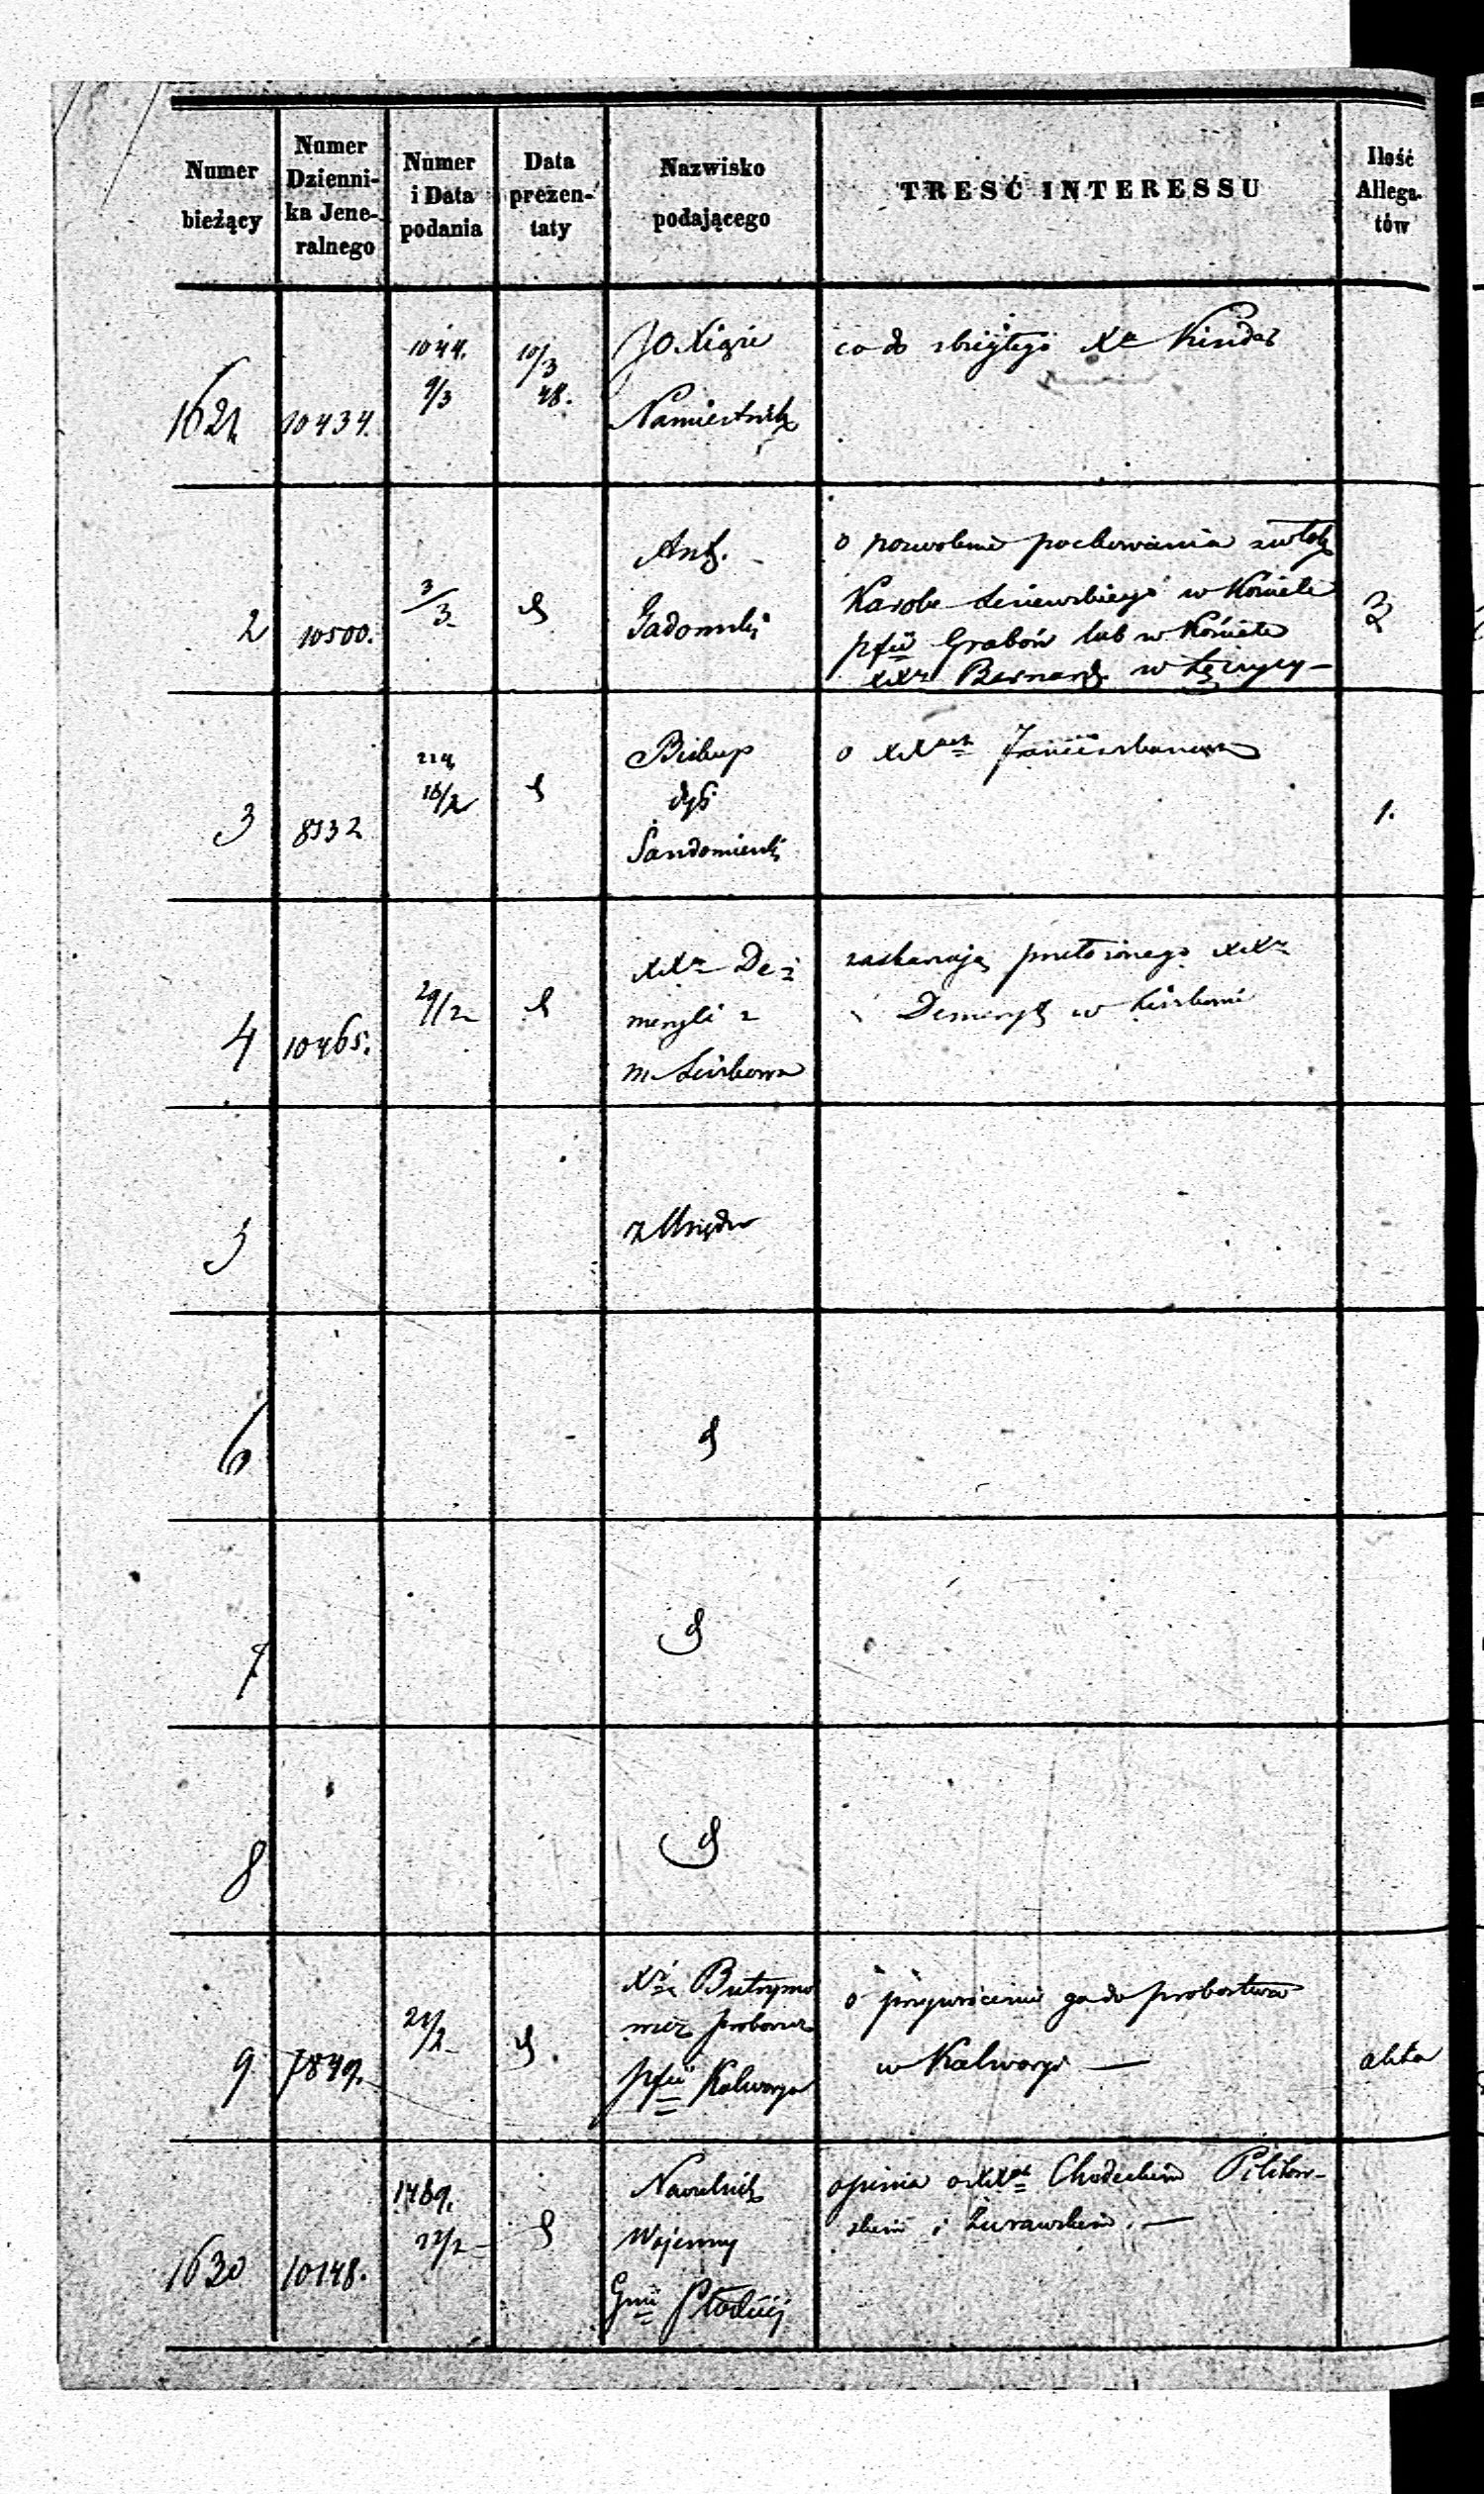 Numer bieżący
Numer Dzienni-
ka Jene-
ralnego
Numer
i Data
podania
Data
prezen-
taty
Nazwisko
podającego
TRESĆ INTERESSU
Ilość
Allega-
tów
1621
10434.
1044.
9/3
10/3
48.
JO Xiąże
Namiestnik
co do zbiegłego Xa
2
10500.
3/3
Ant.
Gadomski
o pozwolenie pochowania zwłok
Karola Leniewskiego w Kościele
pfii Grabów lub w Kościele
XXy Bernard. w Łęczycy —
3
3
8932
224
18/2
Biskup
dyć
Sandomierski
o XX Franciszkanach
1.
4
10465.
29/2
XX De-
meryci z
m.
zaskarżają przełożonego XX
Demeryt w
5
z Urzędu
6
7
8
9
7849.
21/2
Xdz Butrymo
wicz proboszcz
pfii Kalwarya
o przywrócenie go do probostwa
w Kalwaryi —
alleta
1630
10148.
1489.
22/2
Naczelnik
Wojenny
Gnii Płockiej
opinia o XX Chodeckim Pilitow-
skim i Żurawskim. —